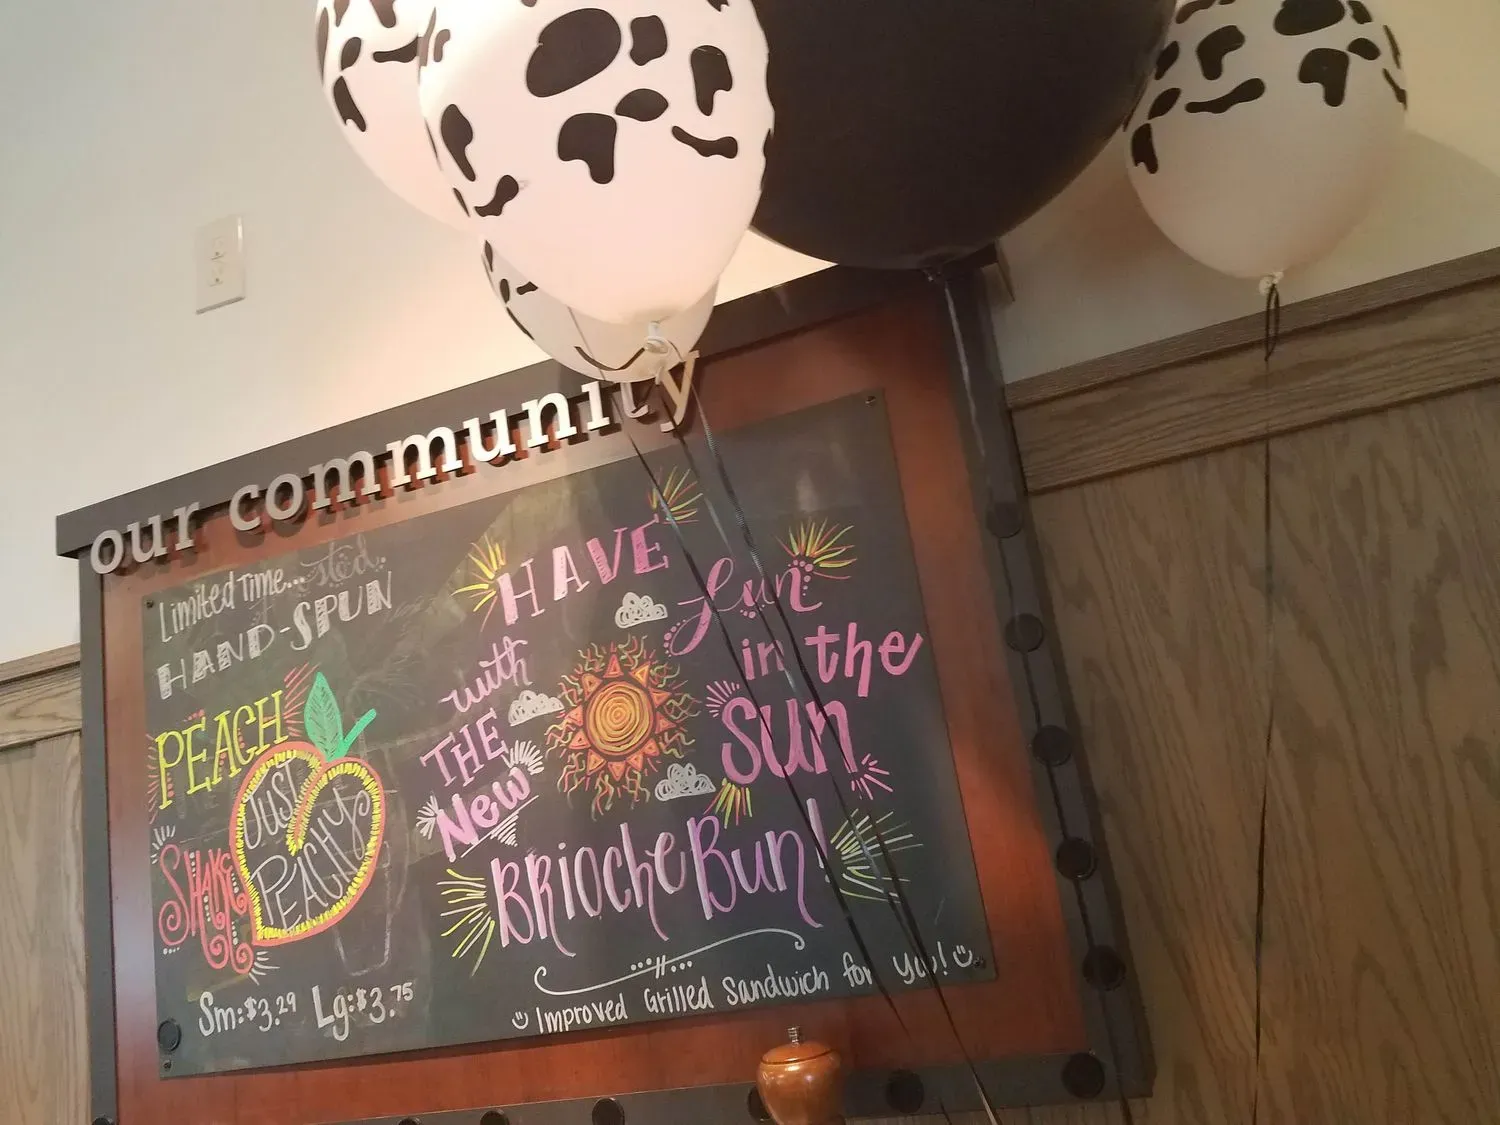 our community
Limited Time...
HAND-SPUN
PEACH
SHAKE
JUST
PEACHY
Sm:$3.29 Lg:$3.75
HAVE
fun
in the
SUN
with
THE
New
BRIOCHE BUN!
Improved Grilled Sandwich for you!